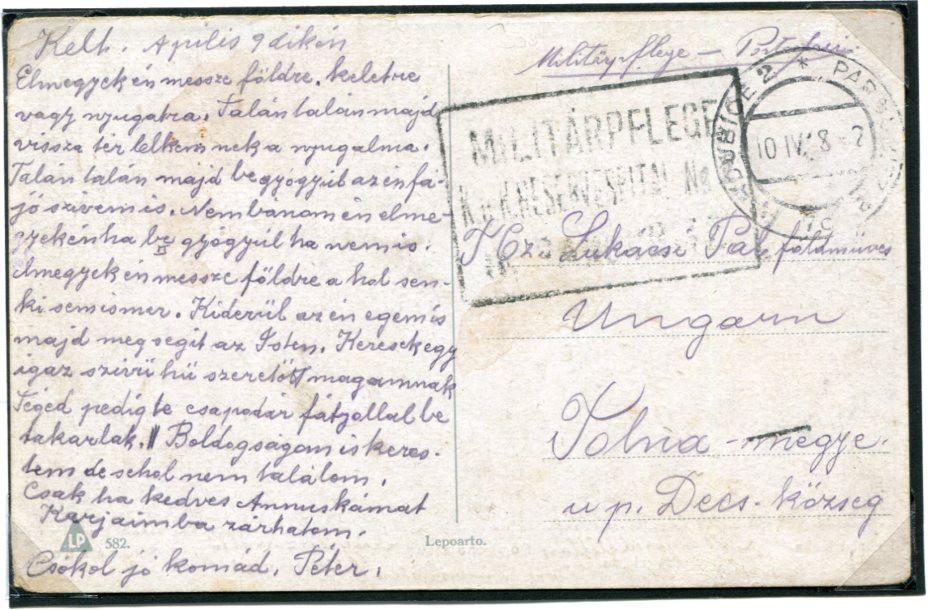 Kelt. Április 9 dikén
Elmegyek én messze földre. keletre
vagy nyugatra. Talán talán majd
vissza tér lelkem nek a nyugalma.
Talán talán majd be gyógyúl az én fá-
jó szivem is. Nem bánom én elme-
gyek én ha be gyógyúl ha nem is.
elmegyek én messze földre a hol sen-
ki sem ismer. Kiderül az én egem is
majd meg segit az Isten. Keresek egy
igaz szivű hű szeretőtt magamnak
Téged pedig te csapodár fátyollal be
takarlak. Boldogságom is keres-
tem de sehol nem találom,
Csak ha kedves Annuskámat
Karjaimba zárhatom.
Csókol jó komád. Péter.
LP 582.
Lepoarto.
Militärpflege - Portofrei
MILITÄRPFLEGE
K.u.K. RESERVESPITAL No
PARDUBICE 2 *
10 IV 18 - 2
Lukácsi Pál földműves
Ungarn
Tolna - megye.
u p. Decs - község